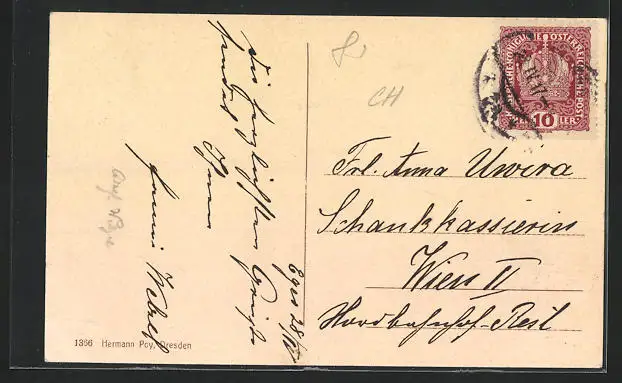 Die herzlichsten Grüße
sendet
Ihnen
Eger 28/IV
CH
KAISERLICHE KÖNIGLICHE ÖSTERREICHISCHE POST
10
Frl. Anna
Schankkassierin
Wien II
Nordbahnhof-Rest
1366 Hermann Poy, Dresden